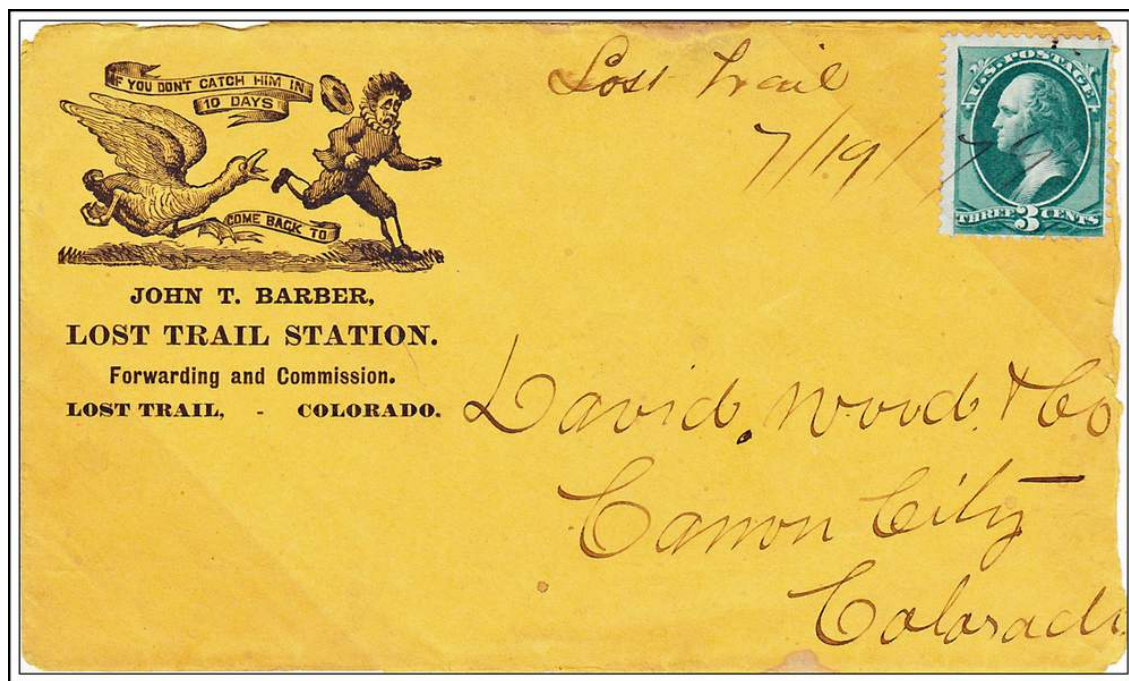 IF YOU DON'T CATCH HIM IN
10 DAYS
COME BACK TO
JOHN T. BARBER,
LOST TRAIL STATION.
Forwarding and Commission.
LOST TRAIL, - COLORADO.
Lost Trail
7/19/77
U.S. POSTAGE.
THREE 3 CENTS
David Wood & Co
Canon City
Colorado